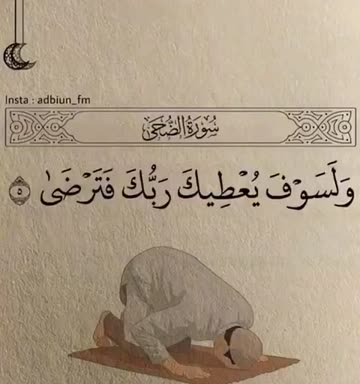 Insta : adbiun_fm
سُورَةُ الضُّحَىٰ
وَلَسَوْفَ يُعْطِيكَ رَبُّكَ فَتَرْضَىٰ ٥